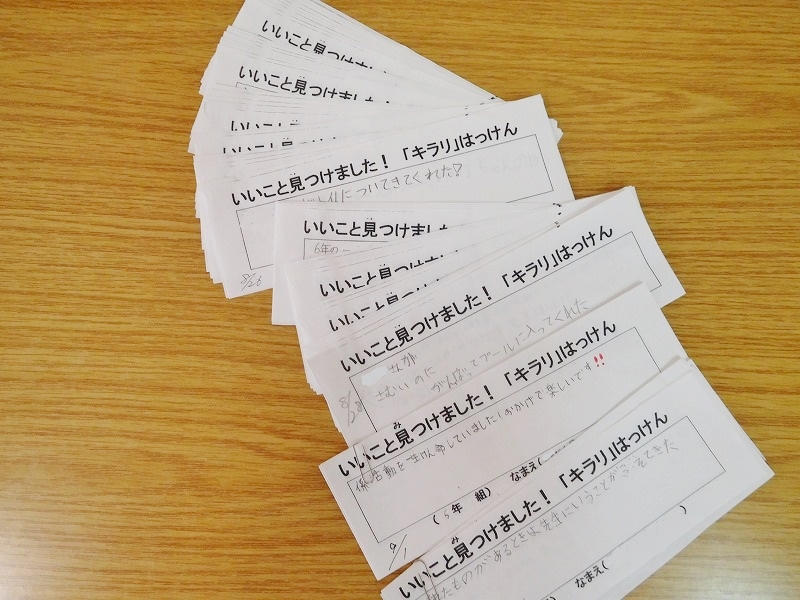 いいこと見つけま
いいこと見つけました！
いいこと見つけ
いいこと見つけました！「キラリ」はっけん
についてきてくれた?
8/26
いいこと見つけました
6年の
いいこと見つけま
いいこと見つけま
いいこと見つけました！「キラリ」はっけん
さんが
さむいのに がんばってプールに入ってくれた
8/28
いいこと見つけました！「キラリ」はっけん
み
係活動を一生けん命していました！おかげで楽しいです!!
(5年 組) なまえ(
9/1
いいこと見つけました！「キラリ」はっけん
み
ものがあるときは先生にいうことが できた
なまえ( )